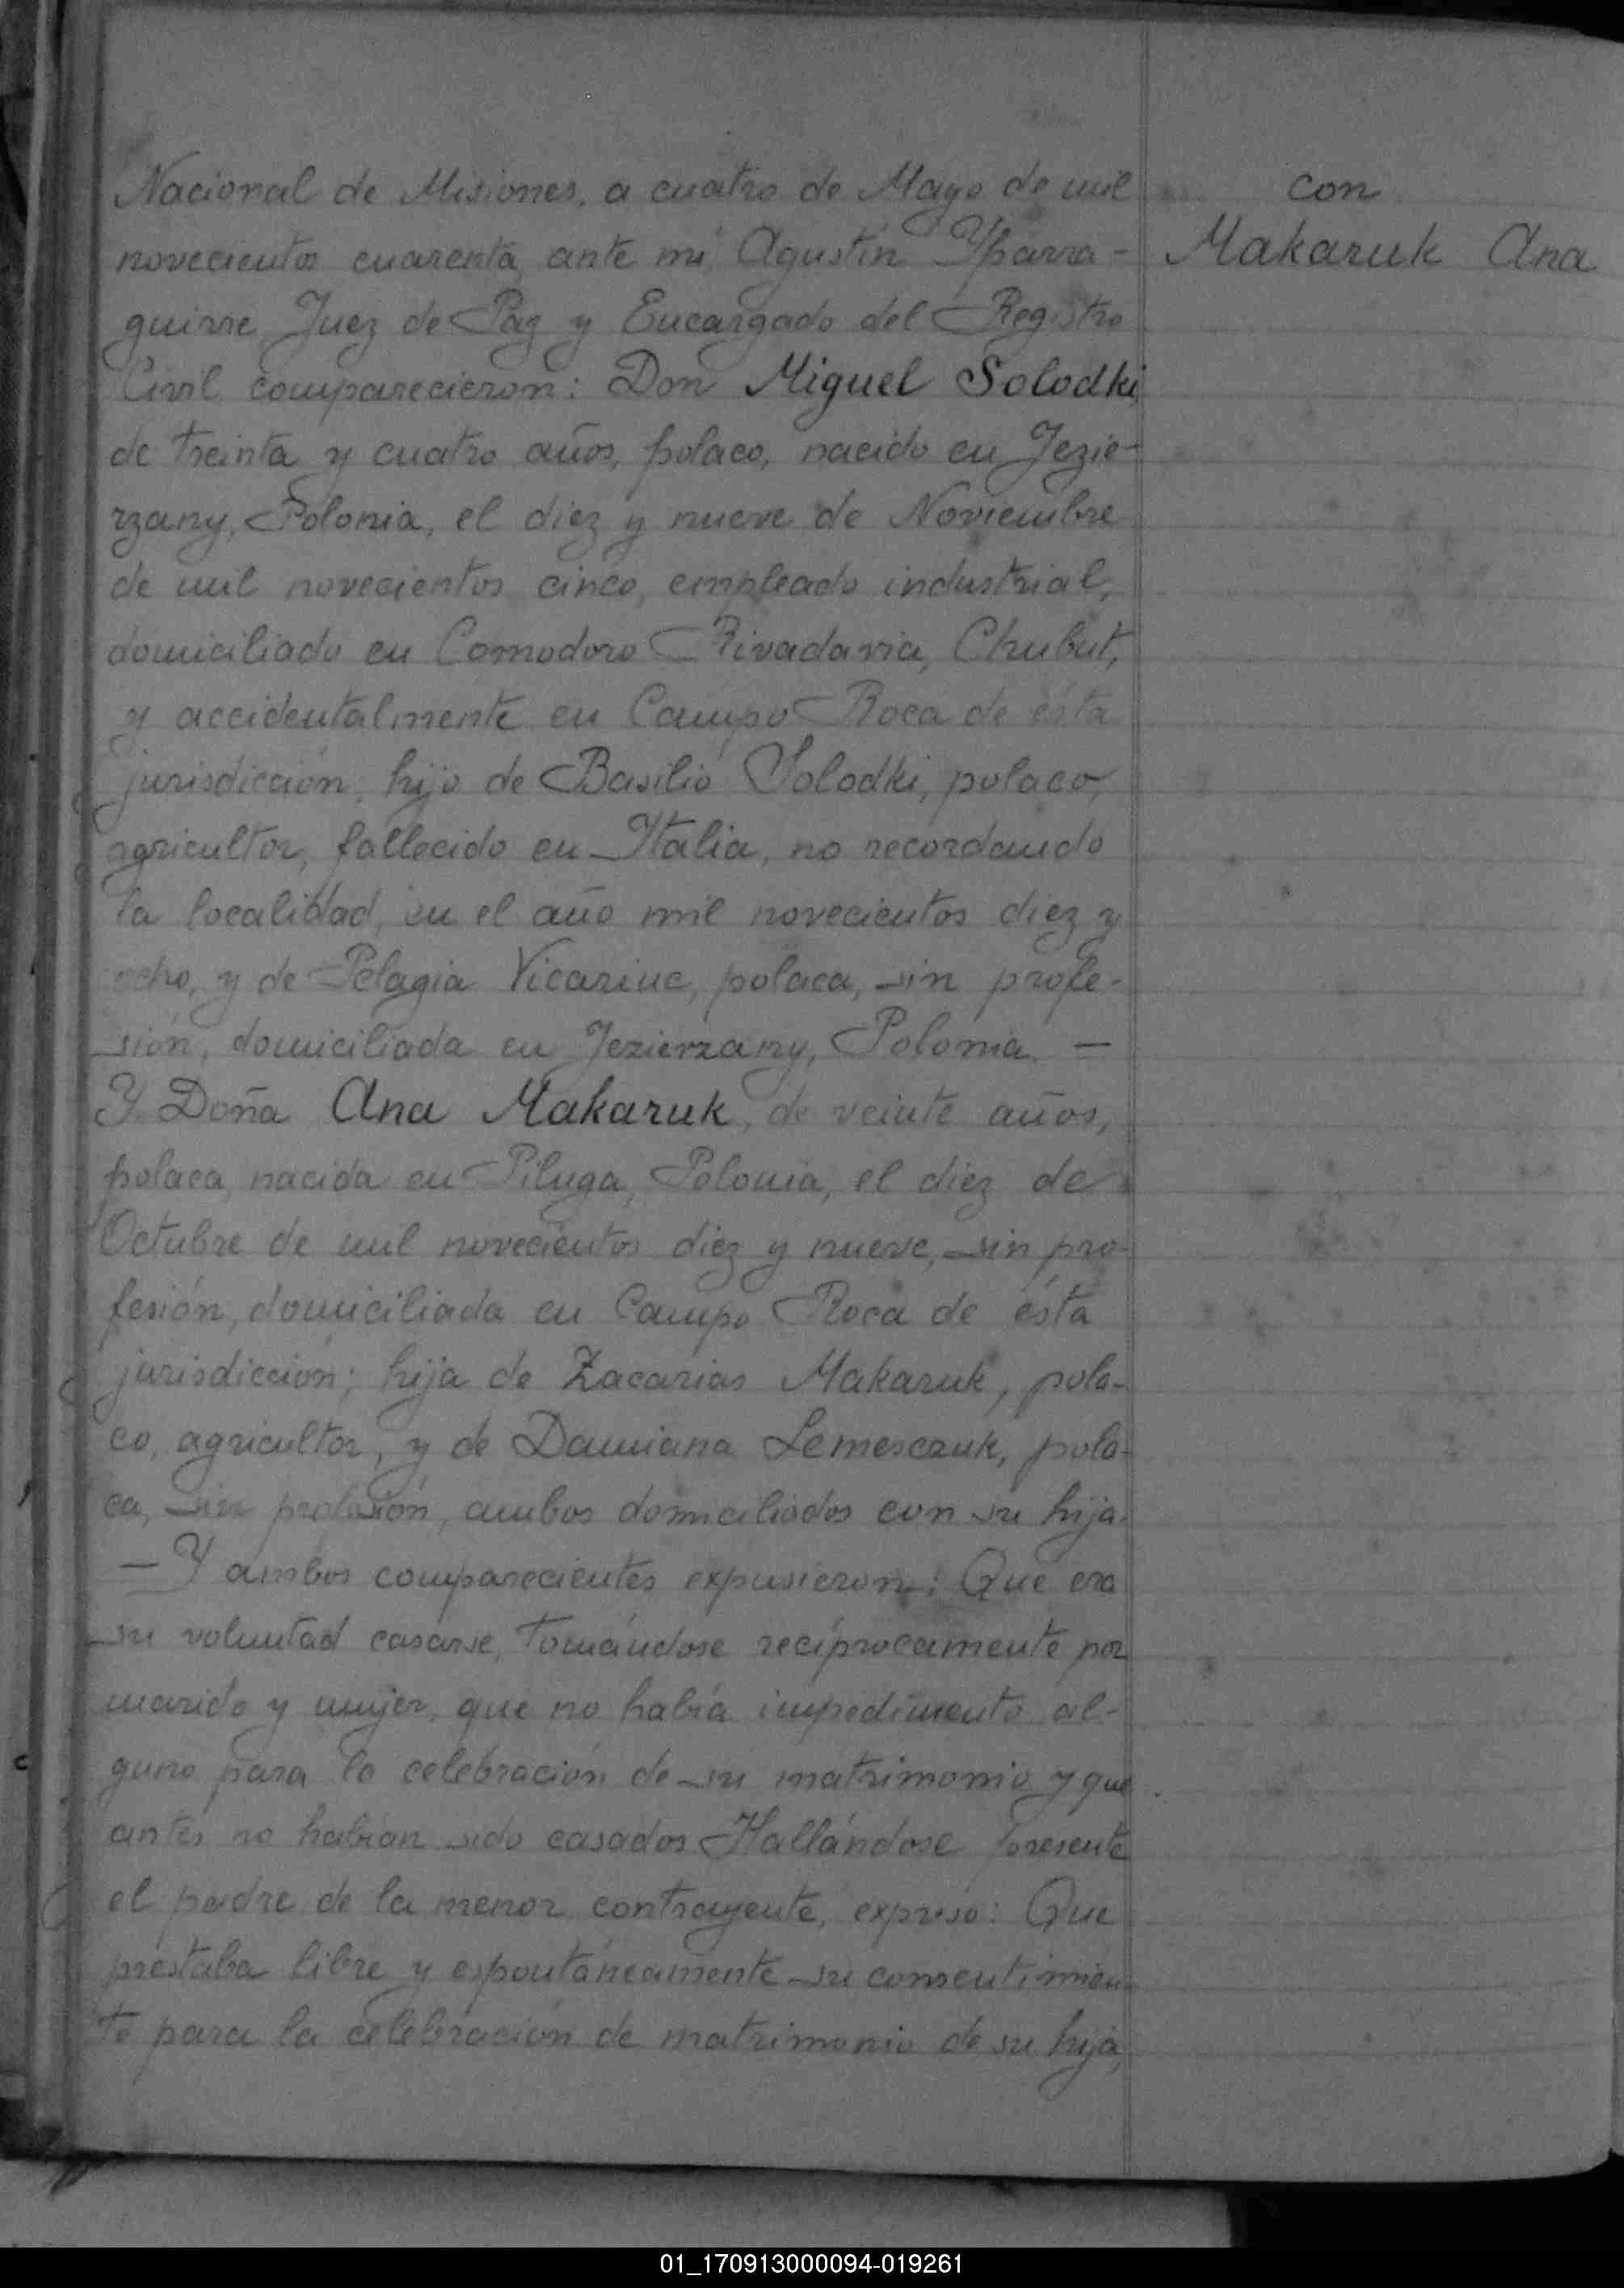 Nacional de Misiones, a cuatro de Mayo de mil
con
novecientos cuarenta, ante mí, Agustín Yparra-
Makaruk Ana
guirre, Juez de Paz y Encargado del Registro
Civil comparecieron: Don Miguel Solodki,
de treinta y cuatro años, polaco, nacido en Jezie-
rzany, Polonia, el diez y nueve de Noviembre
de mil novecientos cinco, empleado industrial,
domiciliado en Comodoro Rivadavia, Chubut,
y accidentalmente en Campo Roca de ésta
jurisdicción; hijo de Basilio Solodki, polaco,
agricultor, fallecido en Italia, no recordando
la localidad, en el año mil novecientos diez y
ocho, y de Pelagia Vicariuc, polaca, sin profe-
sión, domiciliada en Jezierzany, Polonia. —
Y Doña Ana Makaruk, de veinte años,
polaca, nacida en Piluga, Polonia, el diez de
Octubre de mil novecientos diez y nueve, sin pro-
fesión, domiciliada en Campo Roca de ésta
jurisdicción; hija de Zacarias Makaruk, pola-
co, agricultor, y de Damiana Lemesczuk, pola-
ca, sin profesión, ambos domiciliados con su hija.
— Y ambos comparecientes expusieron: Que era
su voluntad casarse, tomándose recíprocamente por
marido y mujer, que no había impedimento al-
guno para la celebración de su matrimonio y que
antes no habían sido casados. Hallándose presente
el padre de la menor contrayente, expresó: Que
prestaba libre y espontáneamente su consentimien-
to para la celebración de matrimonio de su hija,
01_170913000094-019261